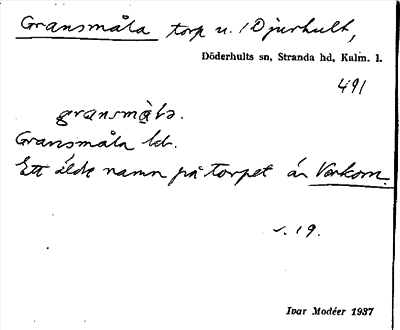 Gransmåla torp u. Djurhult,
Döderhults sn, Stranda hd, Kalm. l.
491
gransmå̀lə.
Gransmåla ldr.
Ett äldre namn på torpet är Verkom.
s. 19.
Ivar Modéer 1937